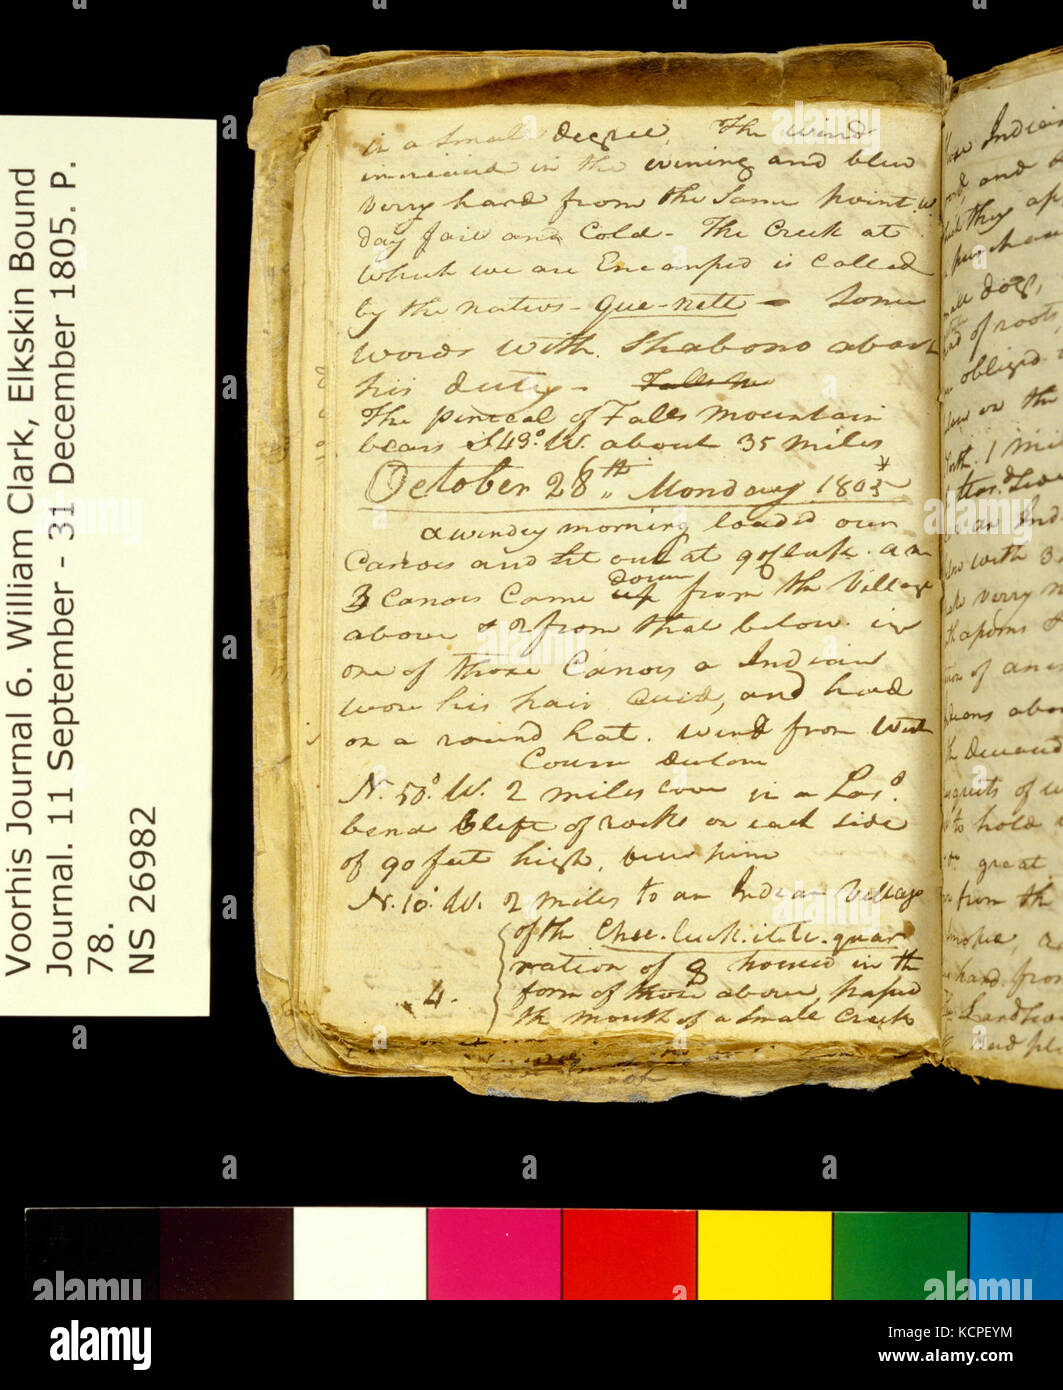 Voorhis Journal 6. William Clark, Elkskin Bound
Journal. 11 September - 31 December 1805. P.
78.
NS 26982
in a Small degree, The wind
increased in the evening and blew
verry hard from the Same point W.
day fair and Cold- The Creek at
which we are Encamped is Called
by the natives- Que-nett - Some
words with Shabono about
his duty-
The pinical of Falls mountain
bears S 43° W. about 35 miles
October 28th Monday 1805
a windey morning loaded our
Canoes and Set out at 9 oClock. a m
3 Canoes Came down up from the Village
above & 2 from that below in
one of those Canoes a Indian
wore his hair cued, and had
on a round hat. Wind from West
Course
N. 50° W. 2 miles Cove in a Lard.
bend Clift of rocks on each Side
of 90 feet high,
N. 10. W. 2 miles to an Indian Village
of the Chee-luck-it-te-quar
nation of 8 houses in the
form of those above, passed
the mouth of a Small Creek
4.
those Indians
and
they
small dog,
of roots
obliged
on the
North. 1
with 3
verry
of
above
of
to hold
great
from the
hand from
had
a
alamy
Image ID: KCPEYM
www.alamy.com